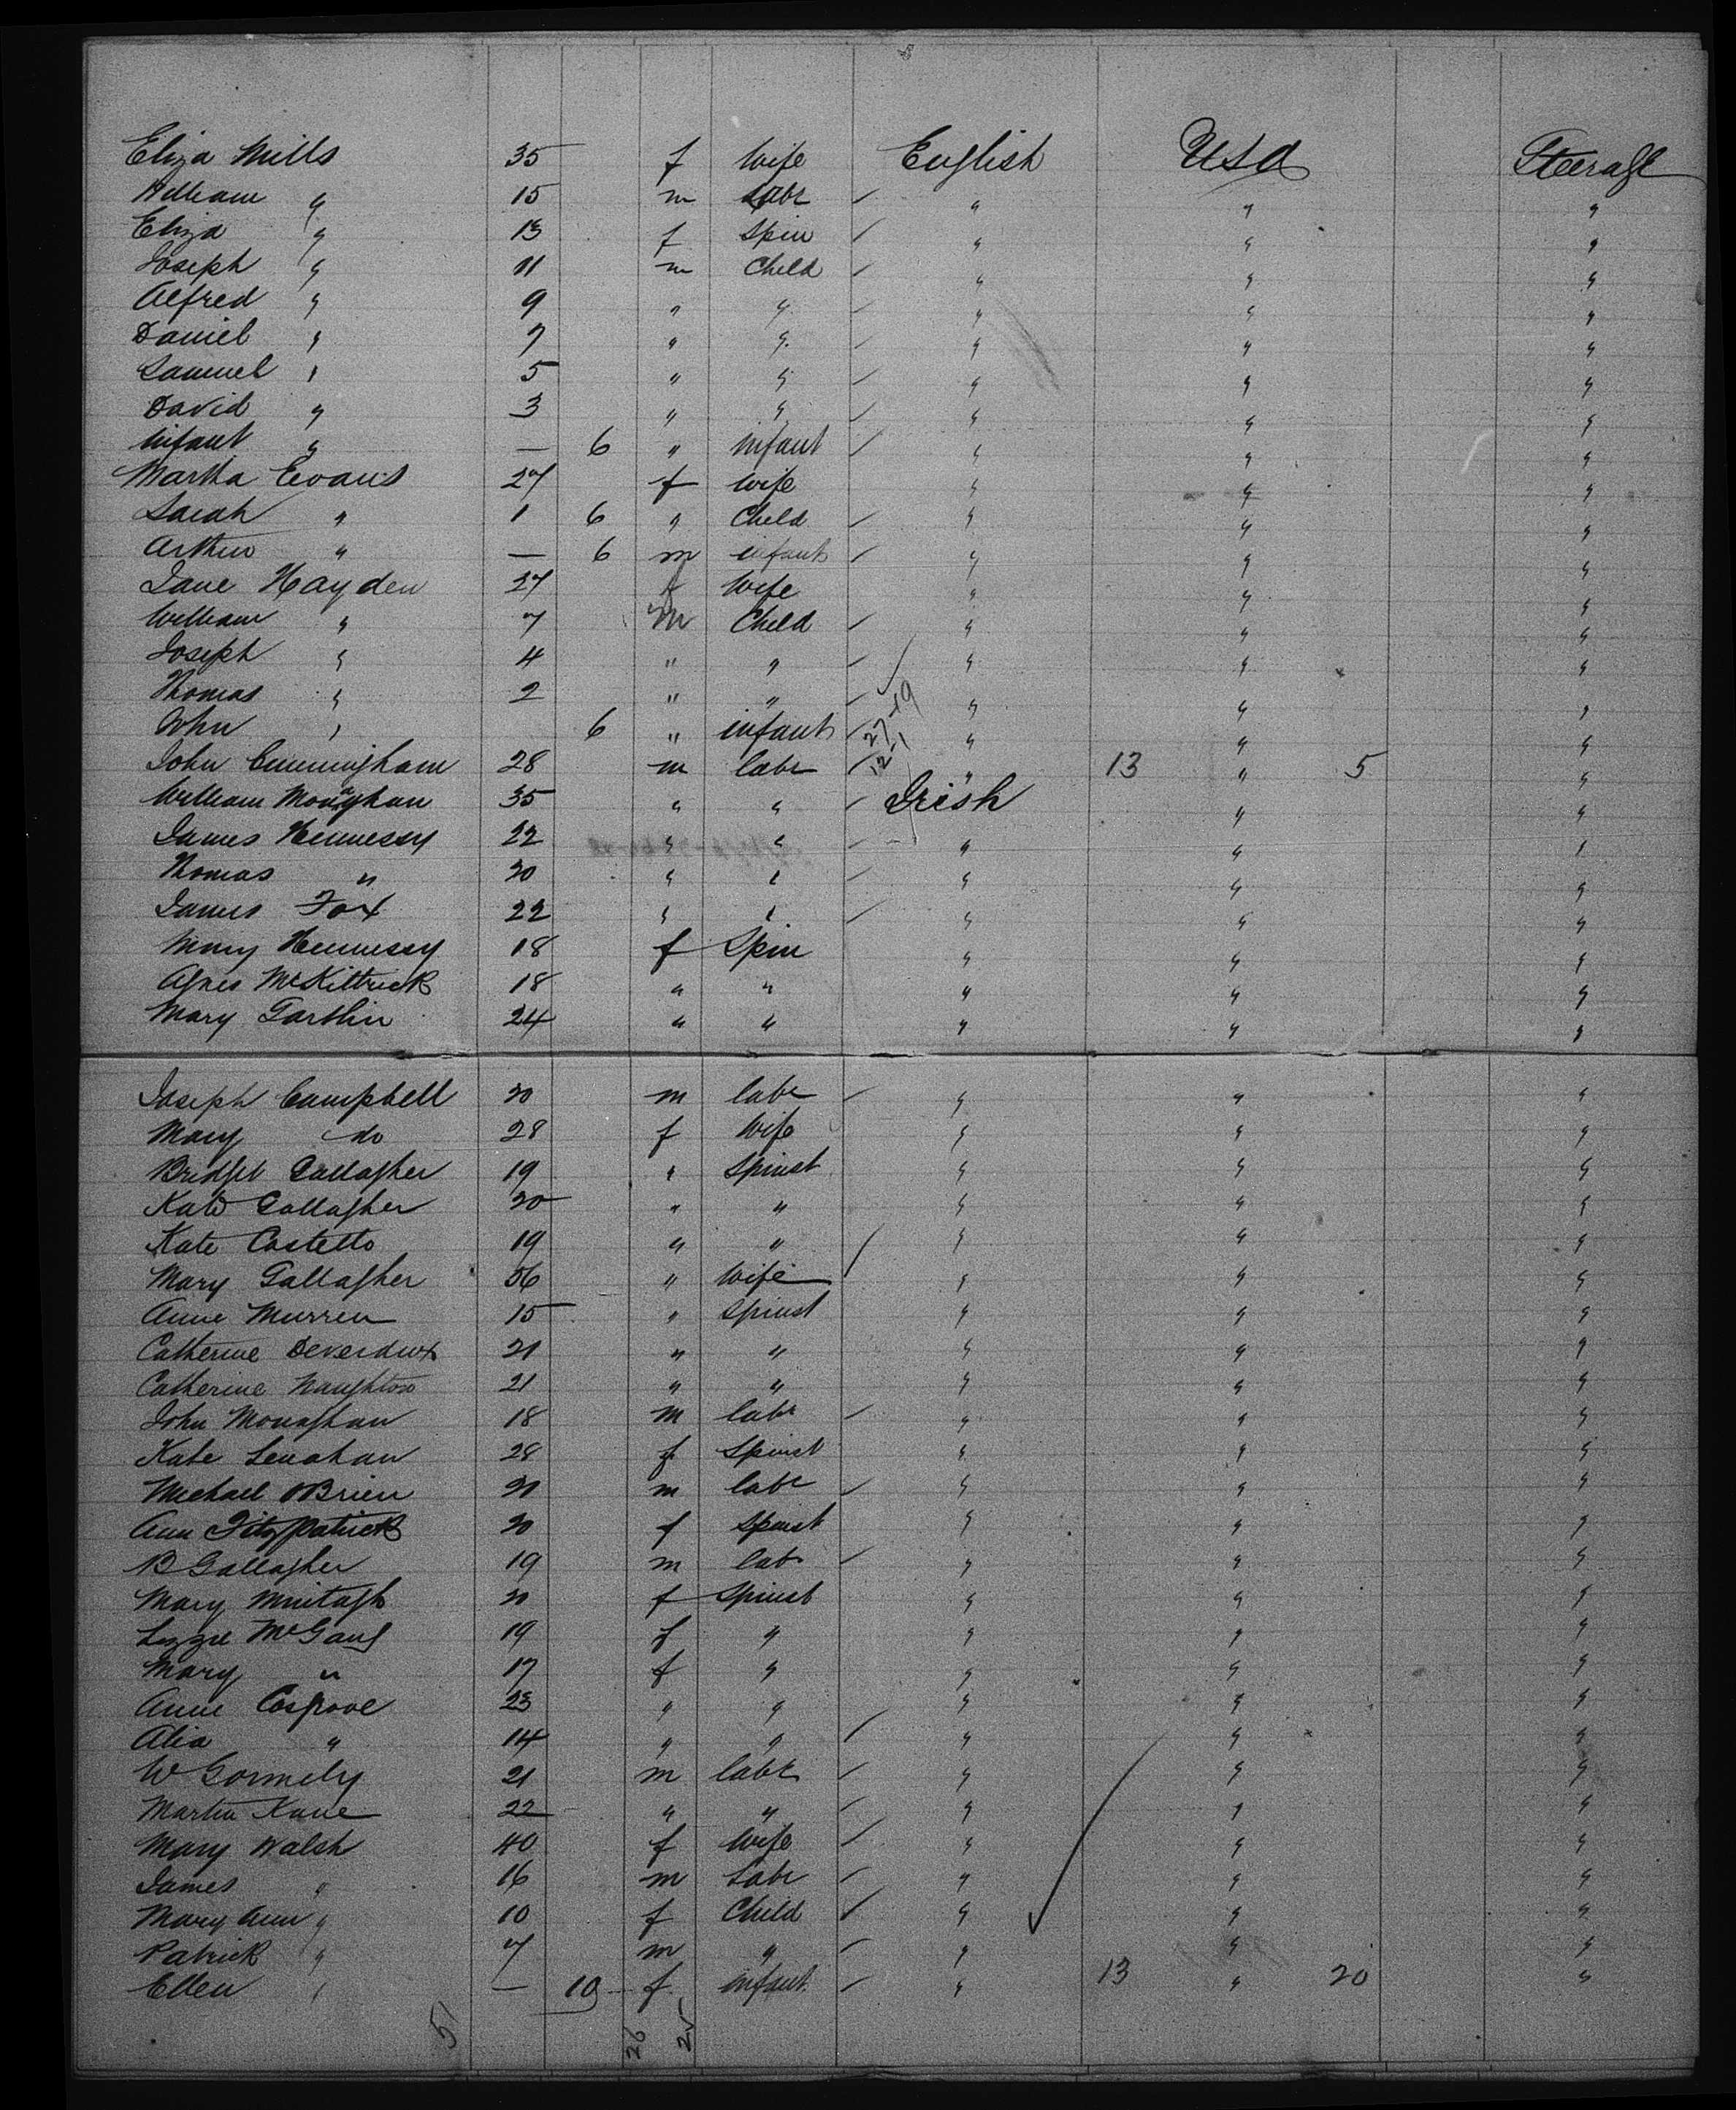 Eliza Mills 35 f Wife English USA Steerage
William " 15 m Labr " " "
Eliza " 13 f Spin " " "
Joseph " 11 m Child " " "
Alfred " 9 " " " " "
Daniel " 7 " " " " "
Samuel " 5 " " " " "
David " 3 " " " " "
Infant " — 6 " infant " " "
Martha Evans 27 f Wife " " "
Sarah " 1 6 " Child " " "
Arthur " — 6 m infant " " "
Jane Hayden 27 f Wife " " "
William " 7 m Child " " "
Joseph " 4 " " " " "
Thomas " 2 " " " " "
John " 6 " infant " " "
John Cunningham 28 m labr " 13 " 5 "
William Monaghan 35 " " Irish " "
James Hennessy 22 " " " " "
Thomas " 20 " " " " "
James Fox 22 " " " " "
Mary Hennessy 18 f Spin " " "
Agnes McKittrick 18 " " " " "
Mary 24 " " " " "
Joseph Campbell 30 m labr " " "
Mary do 28 f Wife " " "
Bridget Gallagher 19 " Spinst " " "
Kate Gallagher 20 " " " " "
Kate Costello 19 " " " " "
Mary Gallagher 56 " Wife " " "
Anne Murren 15 " Spinst " " "
Catherine 21 " " " " "
Catherine Naughton 21 " " " " "
John Monaghan 18 m labr " " "
Kate Lenahan 28 f Spinst " " "
Michael OBrien 21 m labr " " "
Ann Fitzpatrick 20 f Spinst " " "
B Gallagher 19 m lab " " "
Mary Murtagh 20 f Spinst " " "
Lizzie 19 f " " " "
Mary " 17 f " " " "
Anne Cosgrove 23 " " " " "
" 14 " " " " "
W Gormely 21 m labr " " "
Martin Kane 22 " " " " "
Mary Walsh 40 f Wife " " "
James " 16 m Labr " " "
Mary Ann " 10 f Child " " "
Patrick " 7 m " " " "
Ellen " — 10 f infant " 13 " 20 "
51 26 25